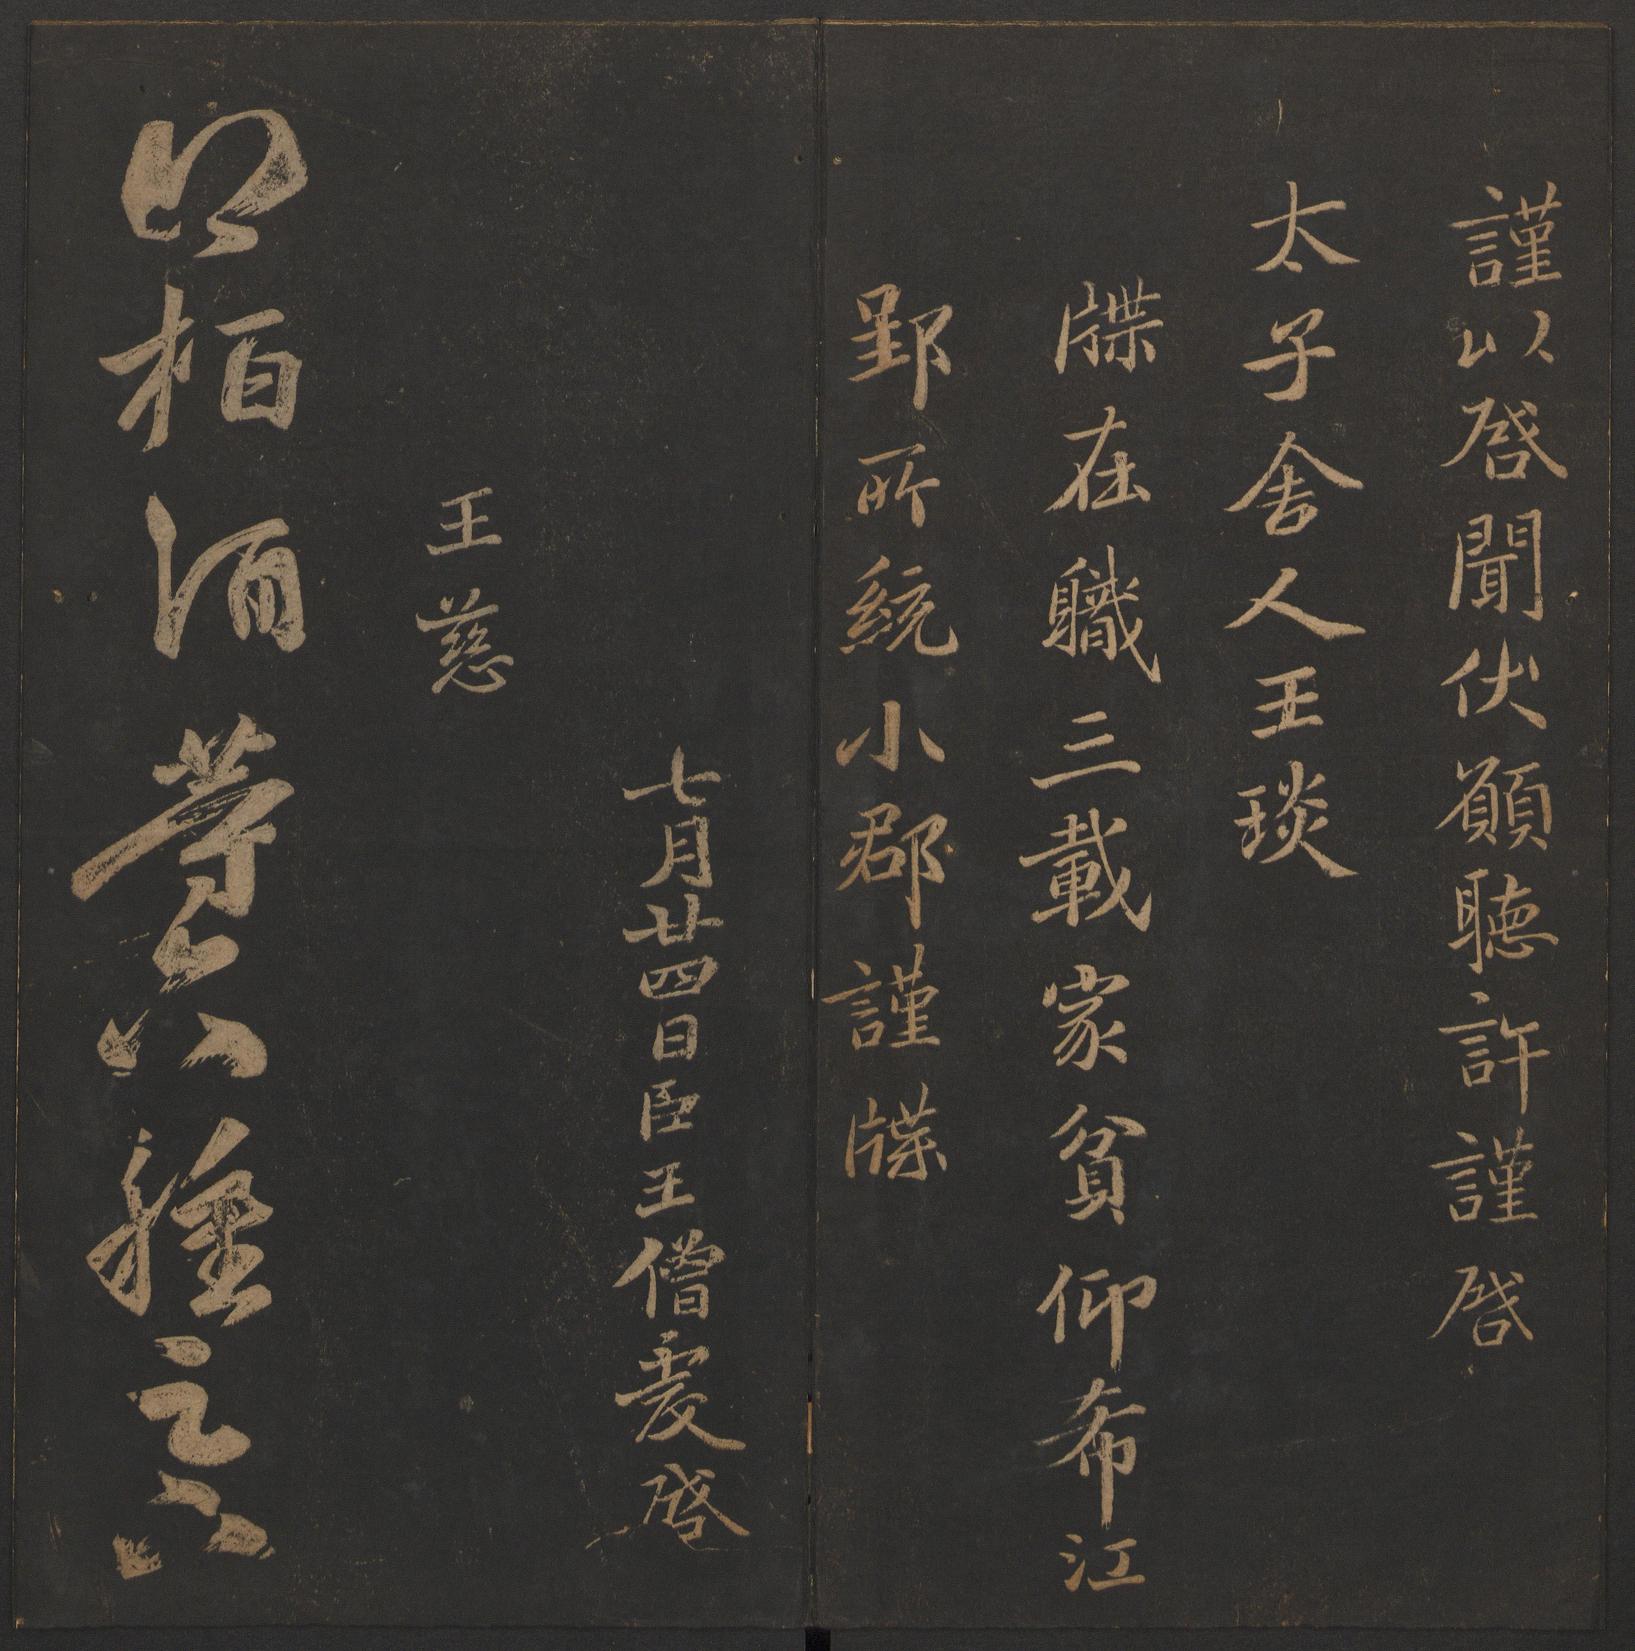 謹以啓聞伏願聽許謹啓
太子舍人王琰
牒在職三載家貧仰希江
郢所統小郡謹牒
七月廿四日臣王僧虔啓
王慈
得栢酒等六種足下